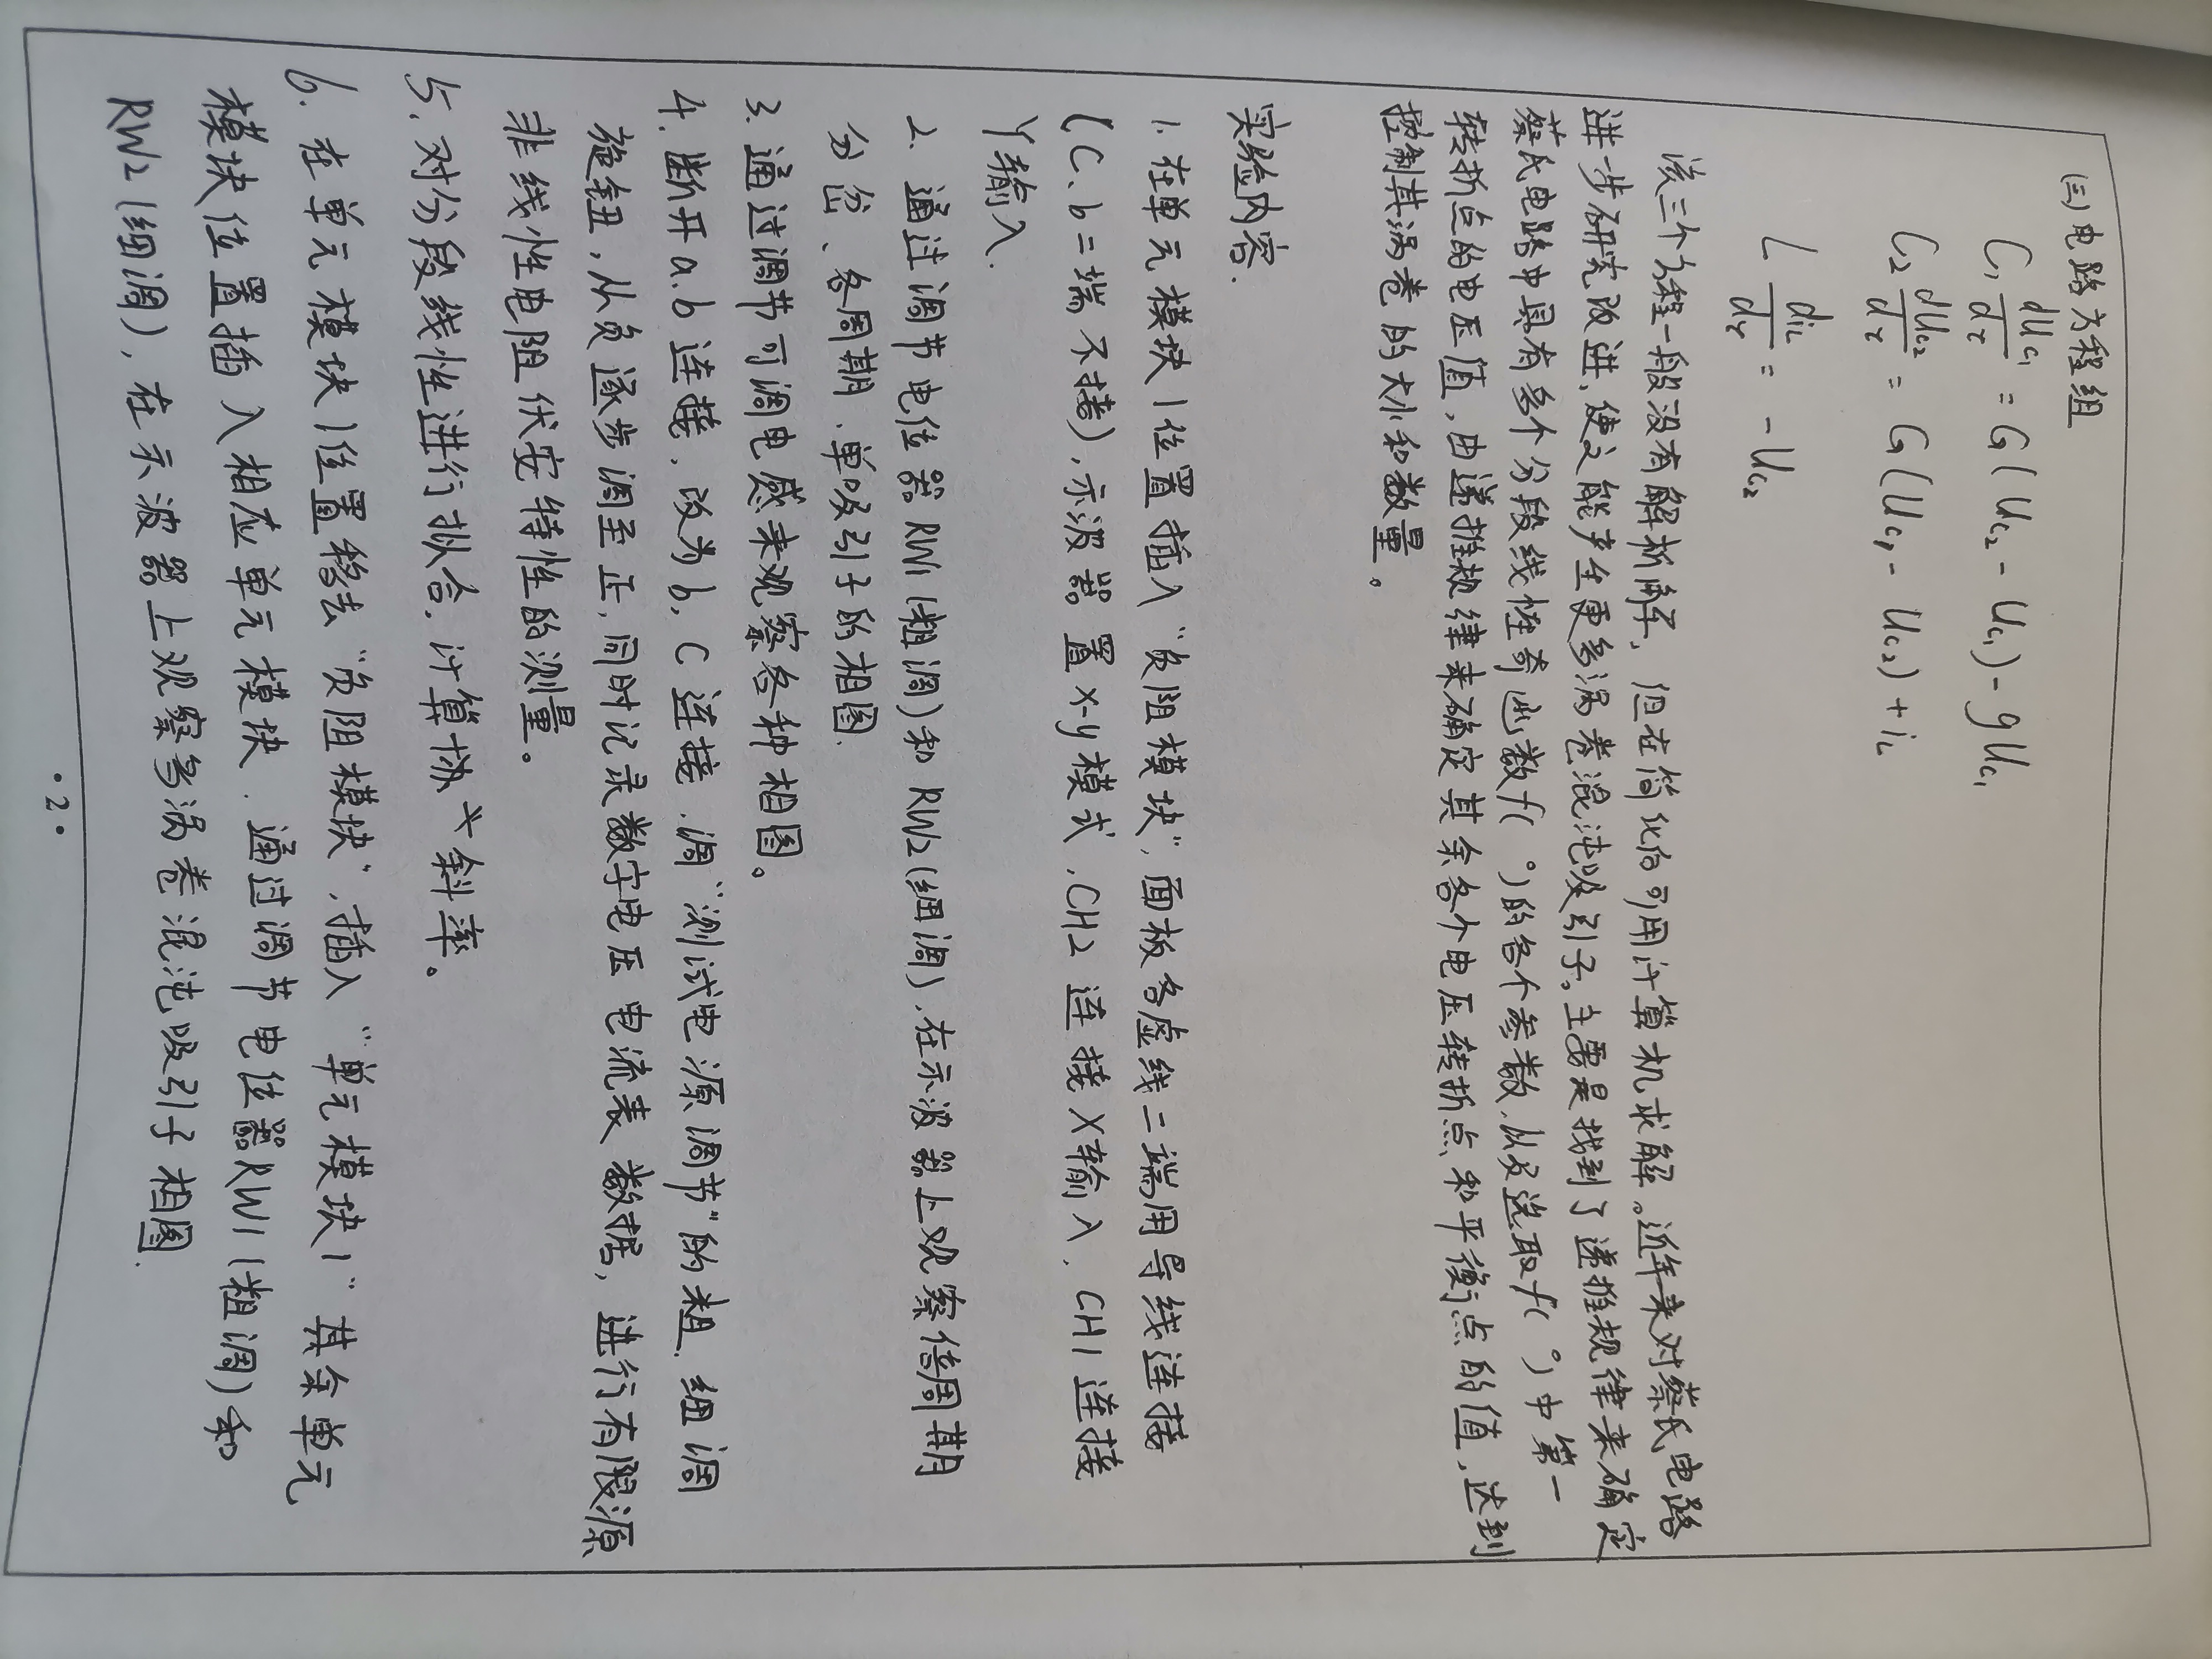 (三) 电路方程组
C₁ dUc₁/dτ = G(Uc₂ - Uc₁) - gUc₁
C₂ dUc₂/dτ = G(Uc₁ - Uc₂) + iL
L diL/dτ = -Uc₂
该三个方程一般没有解析解，但在简化后可用计算机求解。近年来对蔡氏电路
进步研究改进，使之能产生更多涡卷混沌吸引子。主要是找到了递推规律来确定
蔡氏电路中具有多个分段线性奇函数f(°)的各个参数，从及选取f(°)中第一
转折点的电压值，由递推规律来确定其余各个电压转折点和平衡点的值，达到
控制其涡卷的大小和数量。
实验内容.
1. 在单元模块1位置插入“负阻模块”，面板各虚线二端用导线连接
(C、b二端不接)，示波器置x-y模式，CH2连接X输入，CH1连接
Y输入.
2. 通过调节电位器RW1(粗调)和RW2(细调)，在示波器上观察倍周期
分岔、各周期、单吸引子的相图.
3. 通过调节可调电感来观察各种相图。
4. 断开a.b连接，改为b,C连接，调“测试电源调节”的粗.细调
旋钮，从负逐步调至正，同时记录数字电压电流表数据，进行有限源
非线性电阻伏安特性的测量。
5. 对分段线性进行拟合，计算斜率。
6. 在单元模块1位置移去“负阻模块”，插入“单元模块1”其余单元
模块位置插入相应单元模块.通过调节电位器RW1(粗调)和
RW2(细调)，在示波器上观察多涡卷混沌吸引子相图.
·2·